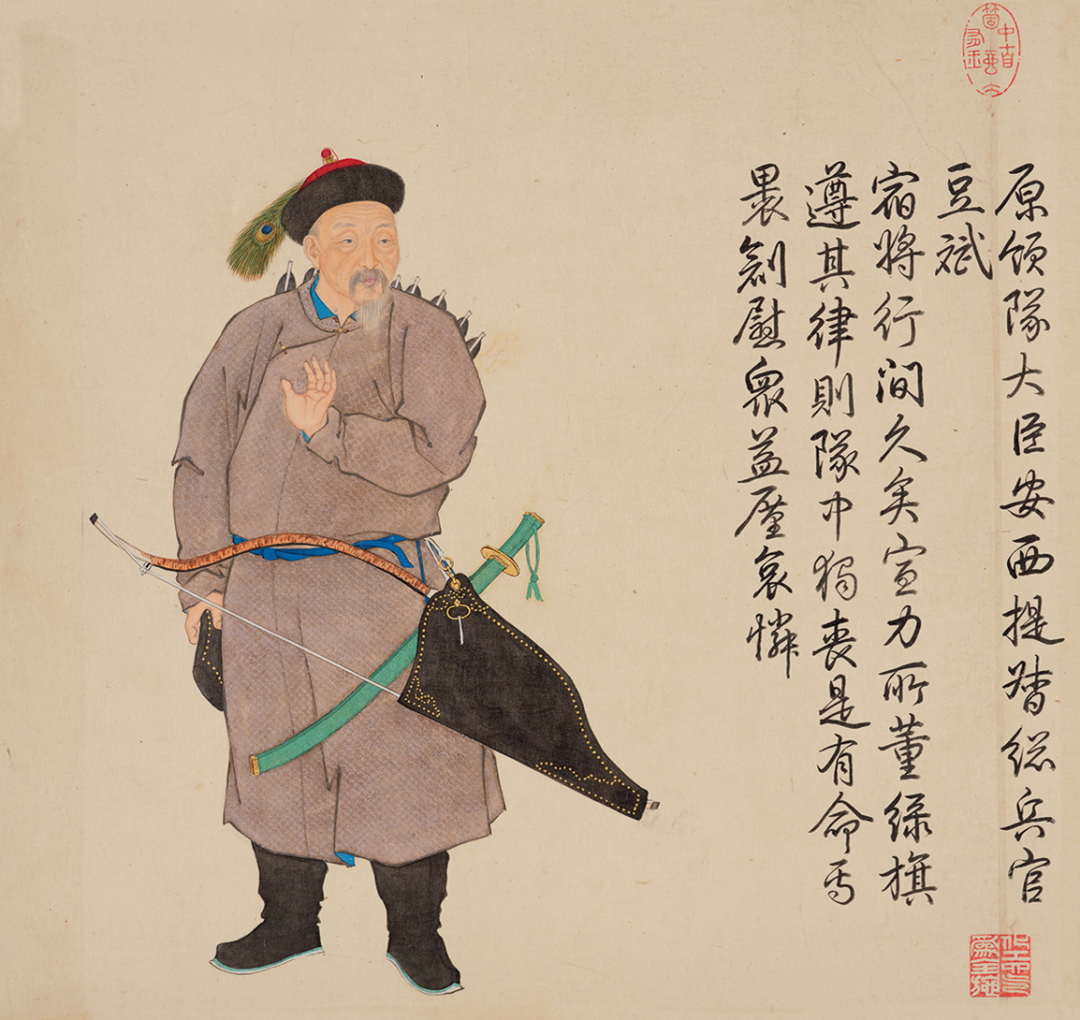 原領隊大臣安西提督緫兵官
豆斌
宿將行間久矣宣力所董綠旗
遵其律則隊中獨喪是有命焉
裹創慰衆益廑哀憐